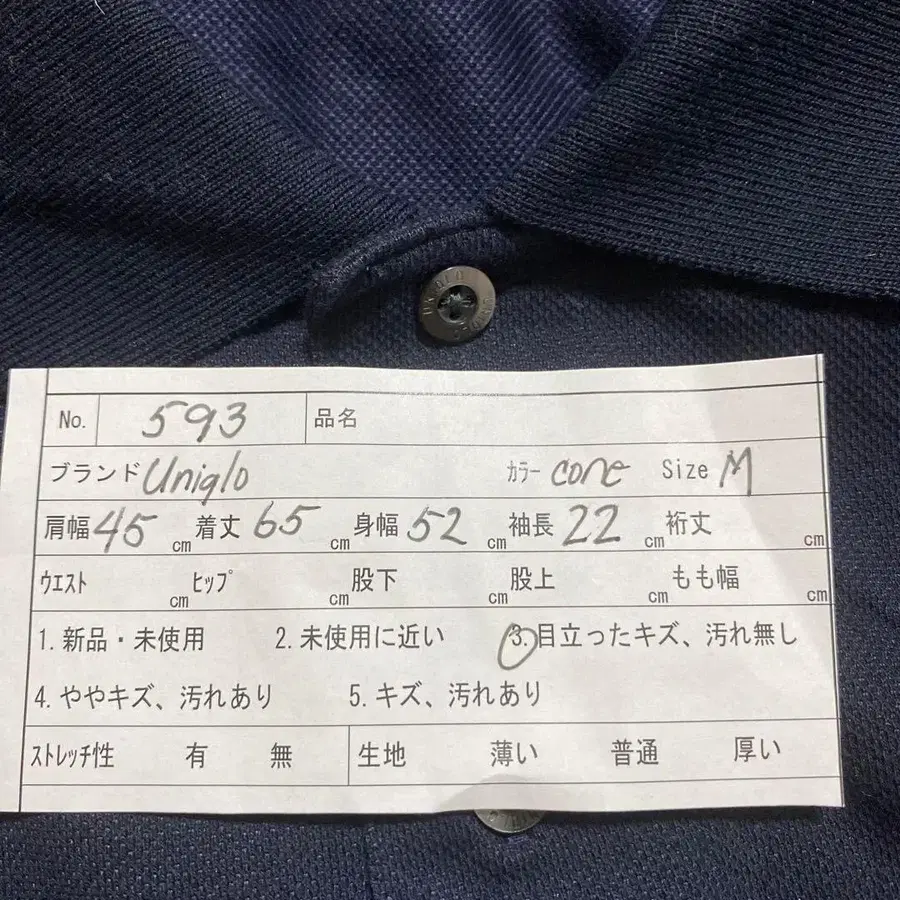 UNIQLO UNIQLO
No. 593 品名
ブランド Uniqlo カラー cone Size M
肩幅 45 cm 着丈 65 cm 身幅 52 cm 袖長 22 cm 裄丈 cm
ウエスト cm ヒップ cm 股下 cm 股上 cm もも幅 cm
1. 新品・未使用 2. 未使用に近い 3. 目立ったキズ、汚れ無し
4. ややキズ、汚れあり 5. キズ、汚れあり
ストレッチ性 有 無 生地 薄い 普通 厚い